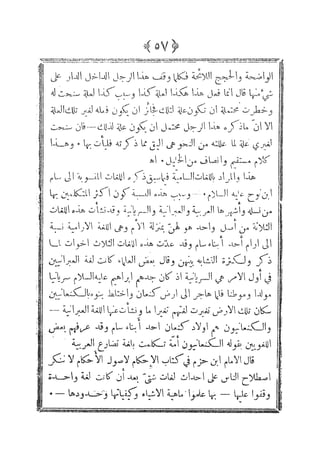 ﴿ ٥٧ ﴾
الواضحة والحجج اللائحة فكلما وقف هذا الرجل الداخل الدار على
شيء منها قال انما فعل هذا هكذا لعلة كذا وسبب كذا لعلة سنحت له
وخطرت محتملة ان تكون علة لتلك فجائز ان يكون فعله لغير تلك العلة
الا ان ماذكره هذا الرجل محتمل ان يكون علة لذلك — فان سنحت
لغيري علة لما عللته من النحو هي اليق مما ذكرته فليأت بها ٠ وهذا
كلام مستقيم وانصاف من الخليل ٠ اه
هذا والمراد باللغات السامية فيما سبق ذكره اللغات المنسوبة الى سام
ابن نوح عليه السلام ٠ — وسبب هذه النسبة كون اكثر المتكلمين بها
من نسله واشهرها العربية والعبرانية والسريانية وقد نشأت هذه اللغات
الثلاثة من أصل واحد هو لهن بمنزلة الأم وهى اللغة الارامية نسبة
الى ارام أحد أبناء سام وقد عدّت هذه اللغات الثلاث اخوات لما
ذكر ولكثرة التشابه بينهن وقال بعض العلماء كانت لغة العبرانيين
في أول الامر هي السريانية اذ كان جدهم ابراهيم عليه السلام سريانيا
مولدا وموطنا فلما هاجر الى ارض كنعان واختلط بنوه بالكنعانيين
سكان تلك الارض تغيرت لغتهم تغيرا ما ونشأت عنها اللغة العبرانية —
والكنعانيون هم اولاد كنعان احد أبناء سام وقد عرفهم بعض
اللغويين بقوله الكنعانيون أمة تكلمت بلغة تضارع العربية
قال الامام ابن حزم في كتاب الإحكام لاصول الأحكام لا ننكر
اصطلاح الناس على احداث لغات شتى بعد أن كانت لغة واحدة
وقفوا عليها — بها علموا ماهية الاشياء وكيفياتها وحدودها — ٠